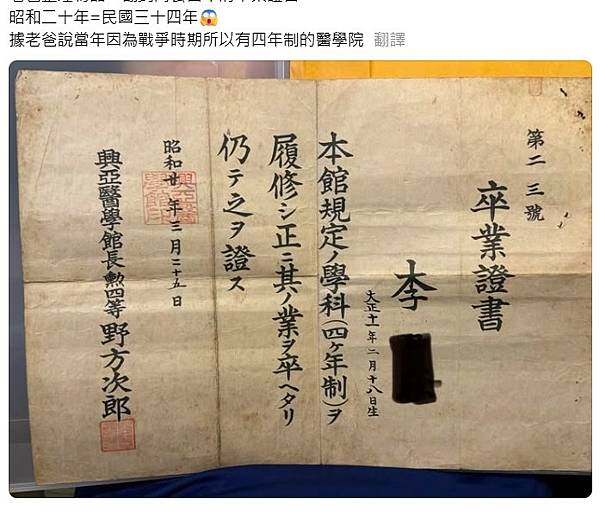 昭和二十年=民國三十四年😱
據老爸說當年因為戰爭時期所以有四年制的醫學院 翻譯
第二三號
卒業證書
李
大正十一年二月十八日生
本館規定ノ學科(四ヶ年制)ヲ
履修シ正ニ其ノ業ヲ卒ヘタリ
仍テ之ヲ證ス
昭和廿年三月二十五日
興亞醫學館長勲四等野方次郎